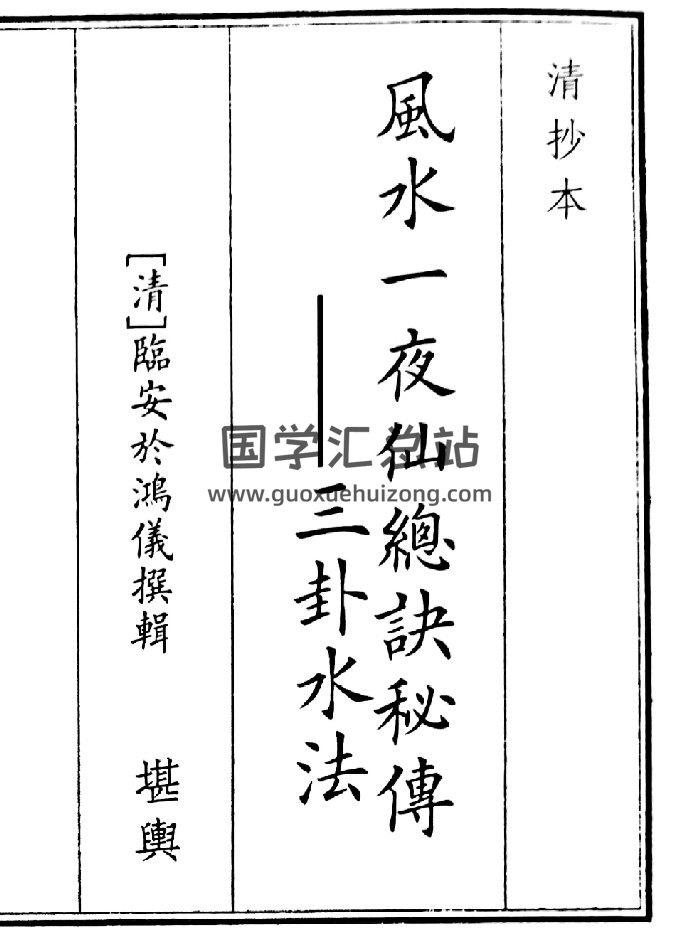 清抄本
風水一夜仙總訣秘傳
——三卦水法
[清]臨安於鴻儀撰輯
堪輿
国学汇总站
www.guoxuehuizong.com